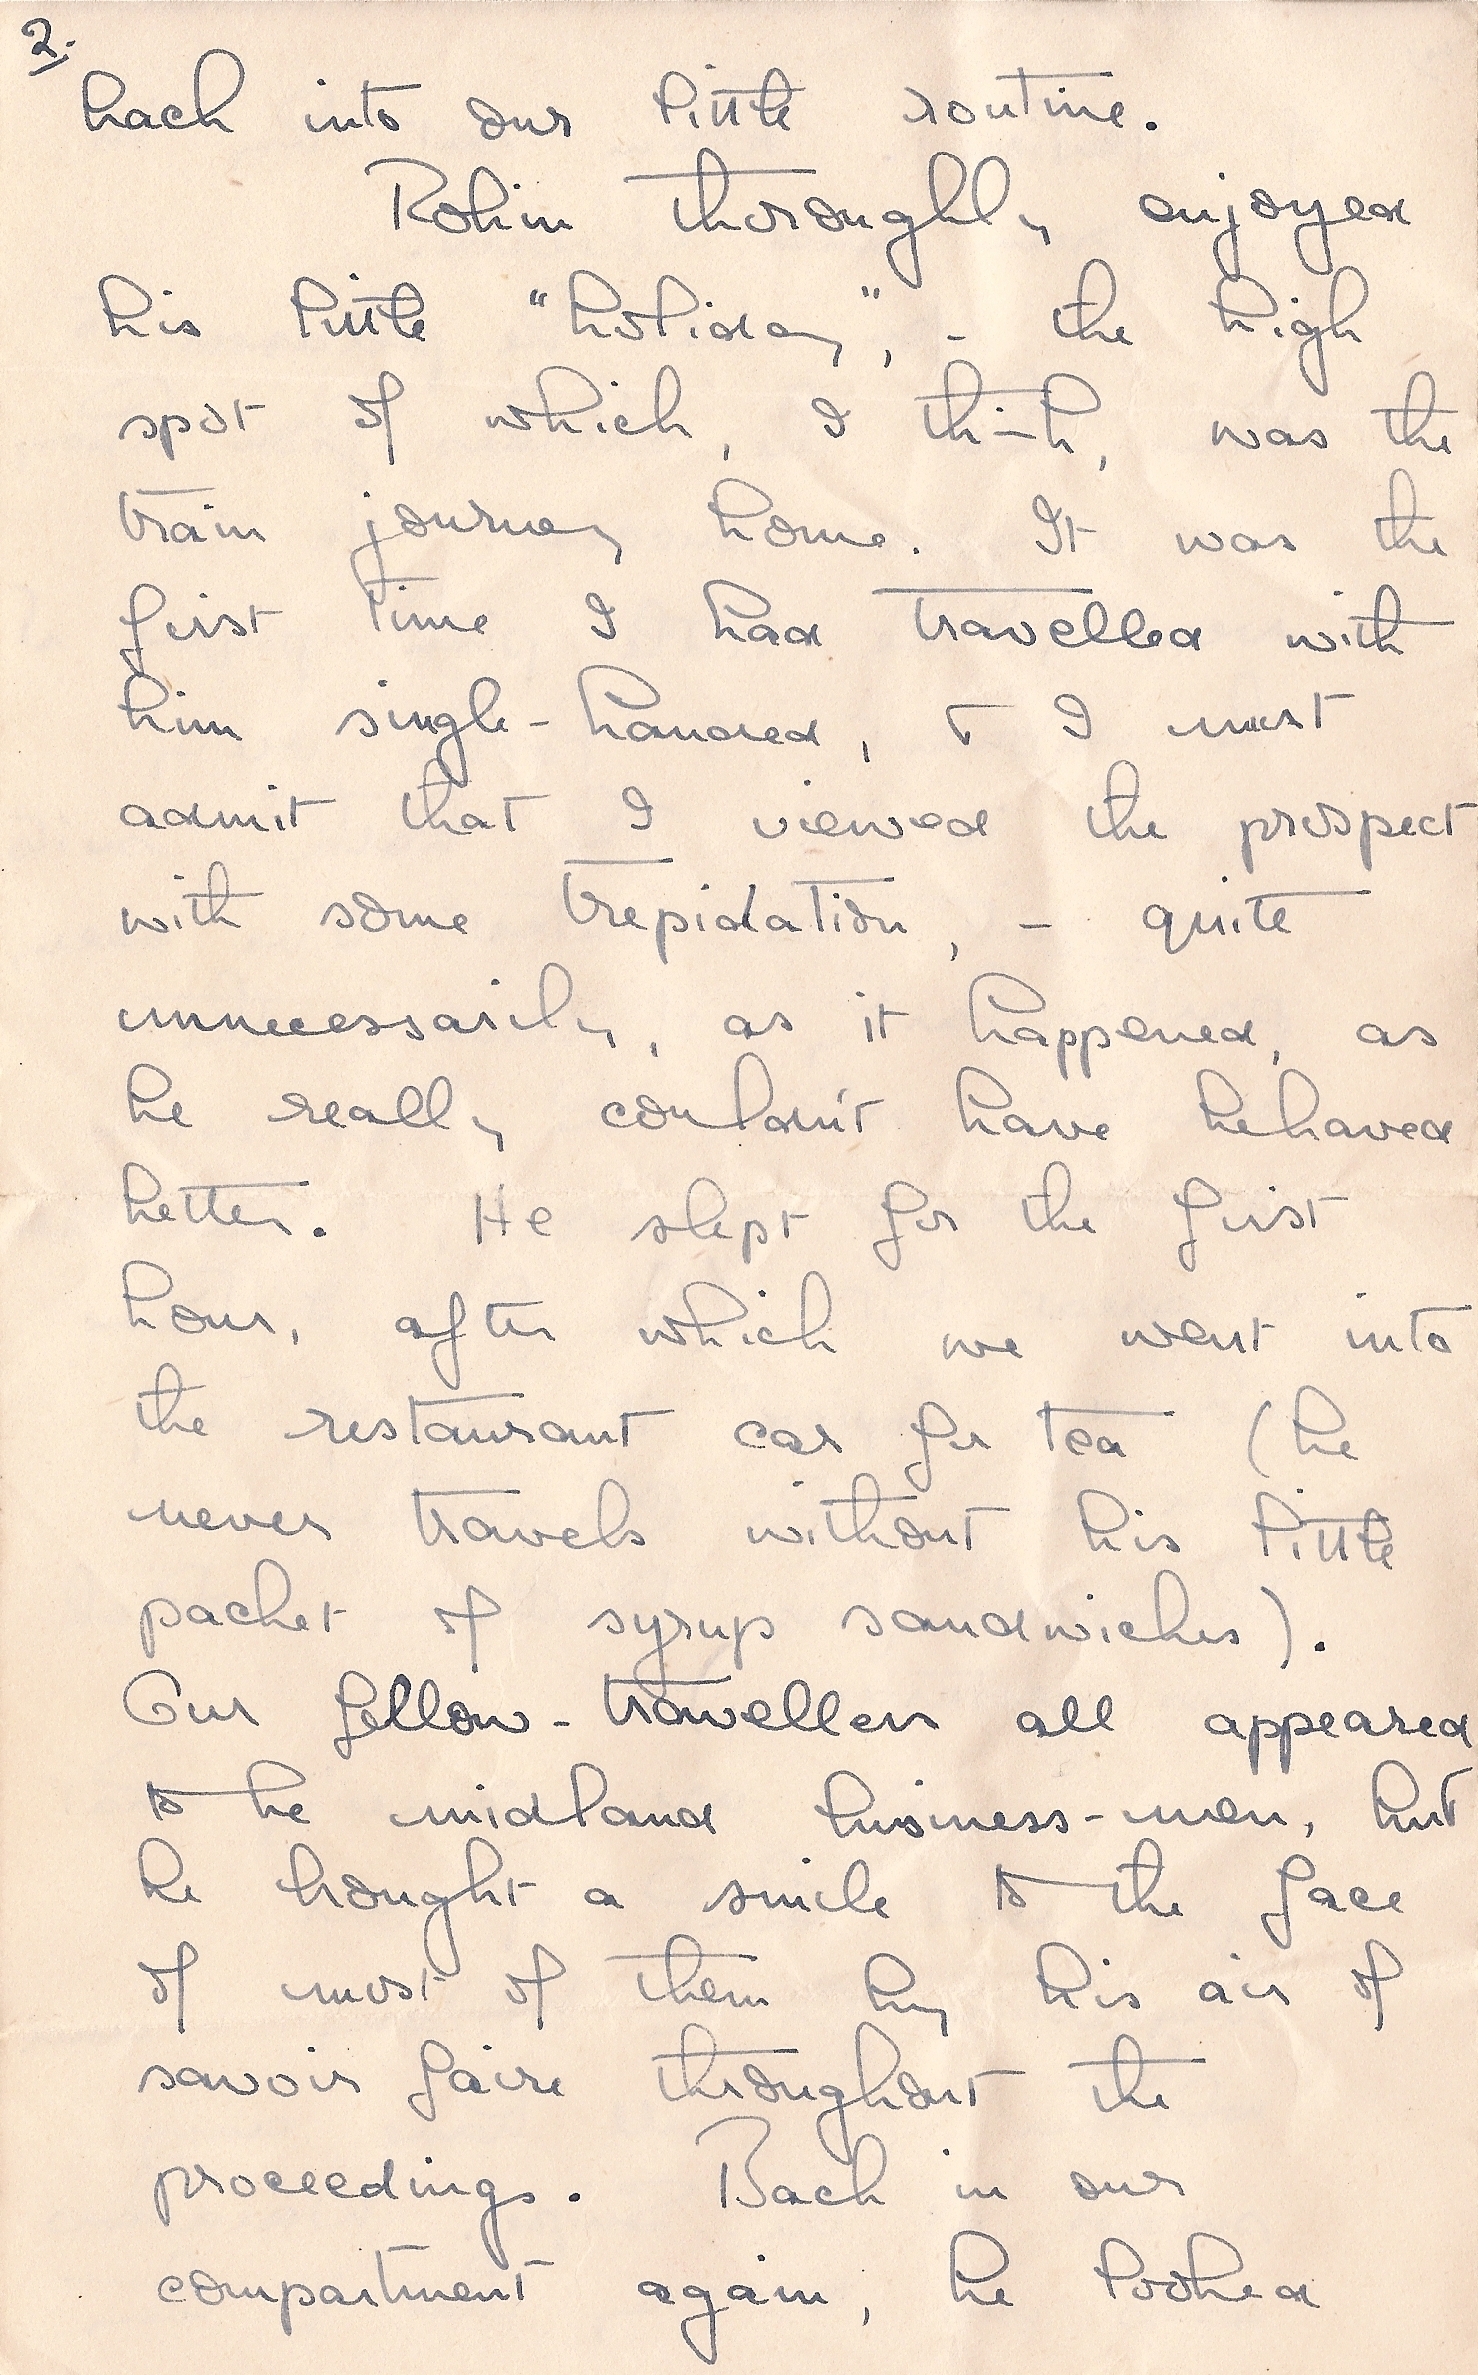 2.
back into our little routine.
Robin thoroughly enjoyed
his little "holiday", - the high
spot of which, I think, was the
train journey home. It was the
first time I had travelled with
him single-handed, & I must
admit that I viewed the prospect
with some trepidation, - quite
unnecessarily, as it happened, as
he really couldn't have behaved
better. He slept for the first
hour, after which we went into
the restaurant car for tea (he
never travels without his little
packet of syrup sandwiches).
Our fellow-travellers all appeared
to be midland business-men, but
he brought a smile to the face
of most of them by his air of
savoir faire throughout the
proceedings. Back in our
compartment again, he looked